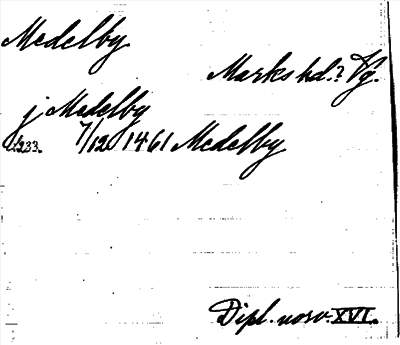 Medelby
Marks hd.? Vg.
j Medelby
s.233. 7/12 1461 Medelby
Dipl. norv. XVI.